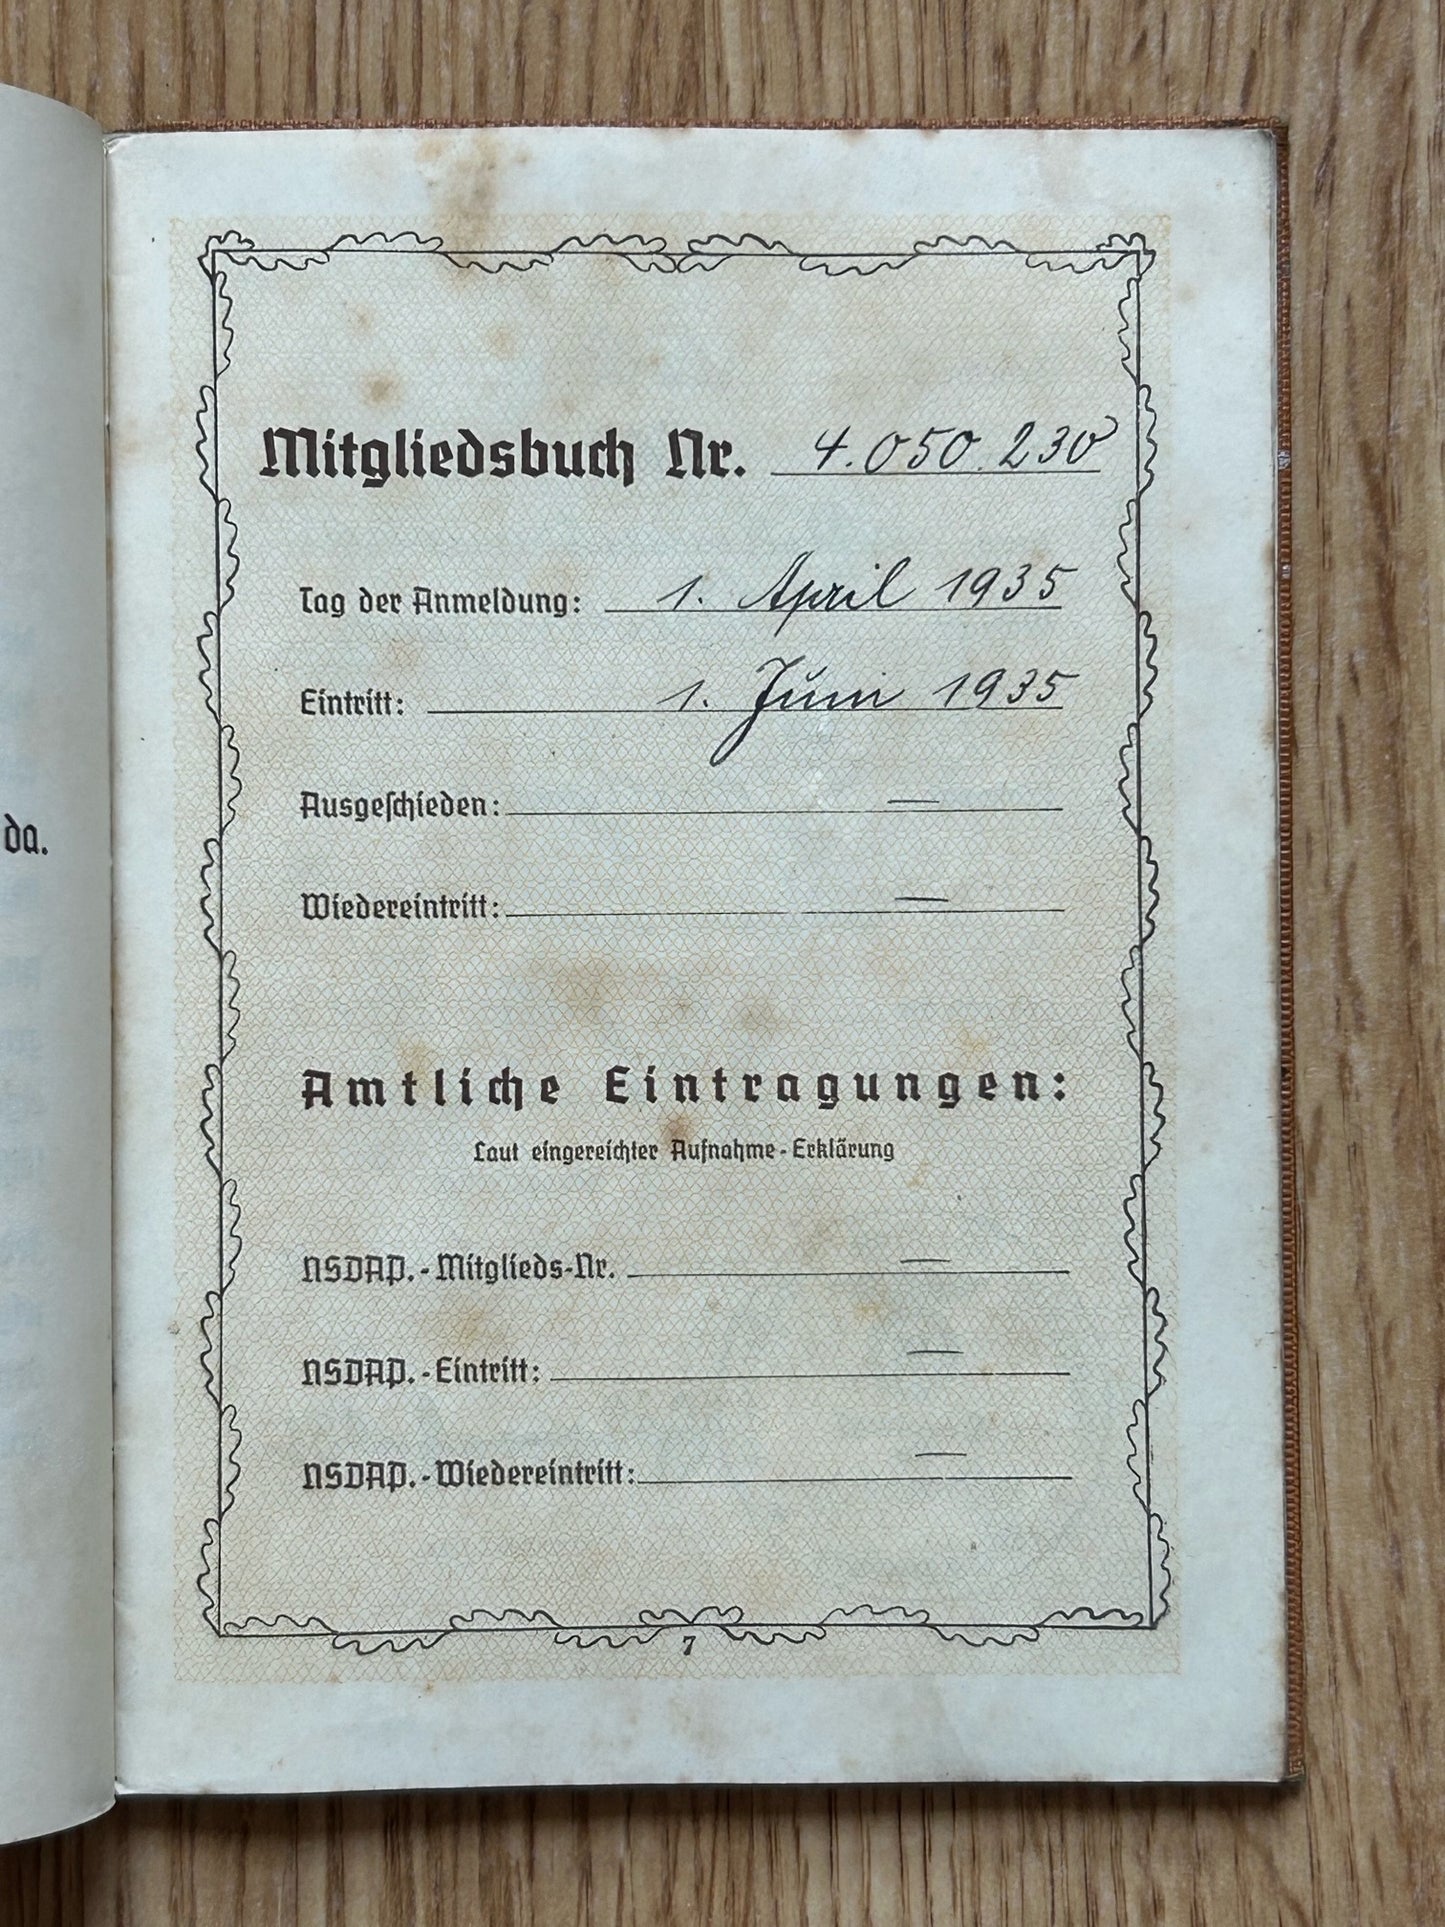 da.
Mitgliedsbuch Nr. 4.050.230
Tag der Anmeldung: 1. April 1935
Eintritt: 1. Juni 1935
Ausgeschieden: —
Wiedereintritt: —
Amtliche Eintragungen:
Laut eingereichter Aufnahme-Erklärung
NSDAP.-Mitglieds-Nr. —
NSDAP.-Eintritt: —
NSDAP.-Wiedereintritt: —
7